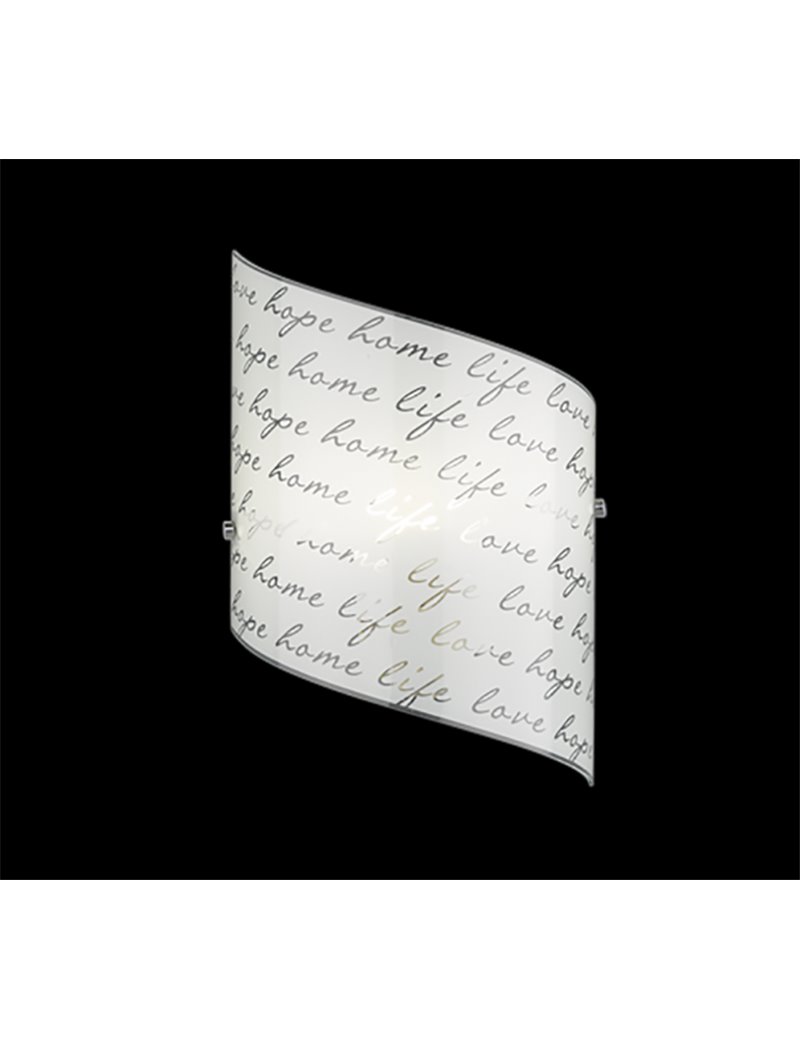 love hope home life love
hope home life love hop
ve hope home life love hop
ope home life love hope
e hope home life love ho
pe home life love hope h
hope home life love hope